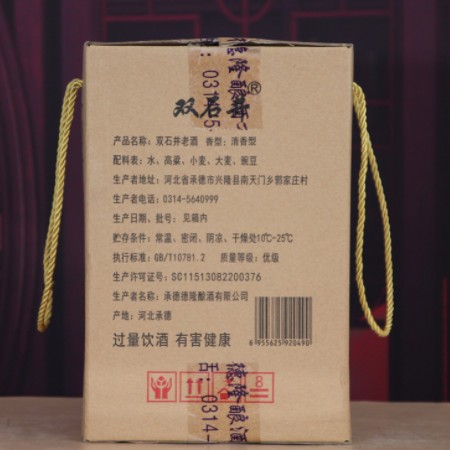 德隆酿酒
0314-5
双石井®
产品名称：双石井老酒 香型：清香型
配料表：水、高粱、小麦、大麦、豌豆
生产者地址：河北省承德市兴隆县南天门乡郭家庄村
生产者电话：0314-5640999
生产日期、批号：见箱内
贮存条件：常温、密闭、阴凉、干燥处10℃-25℃
执行标准：GB/T10781.2 质量等级：优级
生产许可证号：SC11513082200376
生产者名称：承德德隆酿酒有限公司
产地：河北承德
8 955625 920490
过量饮酒 有害健康
8
德隆酿酒
话：0314-